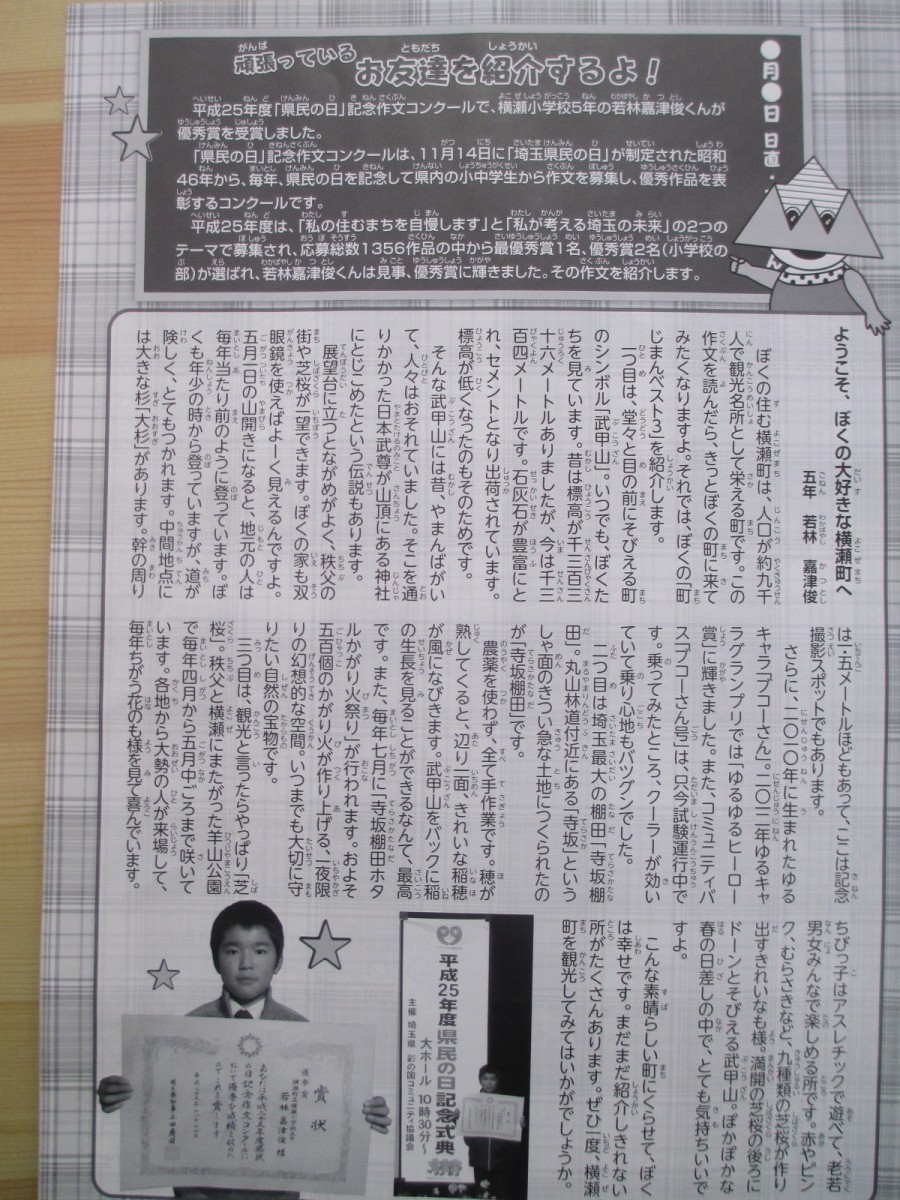 ●月●日 日直・
頑張っているお友達を紹介するよ！
平成25年度「県民の日」記念作文コンクールで、横瀬小学校5年の若林嘉津俊くんが
優秀賞を受賞しました。
「県民の日」記念作文コンクールは、11月14日に「埼玉県民の日」が制定された昭和
46年から、毎年、県民の日を記念して県内の小中学生から作文を募集し、優秀作品を表
彰するコンクールです。
平成25年度は、「私の住むまちを自慢します」と「私が考える埼玉の未来」の2つの
テーマで募集され、応募総数1356作品の中から最優秀賞1名、優秀賞2名（小学校の
部）が選ばれ、若林嘉津俊くんは見事、優秀賞に輝きました。その作文を紹介します。
ようこそ、ぼくの大好きな横瀬町へ
五年 若林 嘉津俊
ぼくの住む横瀬町は、人口が約九千
人で観光名所として栄える町です。この
作文を読んだら、きっとぼくの町に来て
みたくなりますよ。それでは、ぼくの「町
じまんベスト3」を紹介します。
一つ目は、堂々と目の前にそびえる町
のシンボル「武甲山」。いつでも、ぼくた
ちを見ています。昔は標高が千三百三
十六メートルありましたが、今は千三
百四メートルです。石灰石が豊富にと
れ、セメントとなり出荷されています。
標高が低くなったのもそのためです。
そんな武甲山には昔、やまんばがい
て、人々はおそれていました。そこを通
りかかった日本武尊が山頂にある神社
にとじこめたという伝説もあります。
展望台に立つとながめがよく、秩父の
街や芝桜が一望できます。ぼくの家も双
眼鏡を使えばよーく見えるんですよ。
五月一日の山開きになると、地元の人は
毎年当たり前のように登っています。ぼ
くも年少の時から登っていますが、道が
険しく、とてもつかれます。中間地点に
は大きな杉「大杉」があります。幹の周り
は一・五メートルほどもあって、ここは記念
撮影スポットでもあります。
さらに、二〇一〇年に生まれたゆる
キャラブコーさん。二〇一二年ゆるキャ
ラグランプリでは「ゆるゆるヒーロー
賞」に輝きました。また、コミュニティバ
スブコーさん号」は、只今試験運行中で
す。乗ってみたところ、クーラーが効い
ていて乗り心地もバツグンでした。
二つ目は埼玉最大の棚田「寺坂棚
田」。丸山林道付近にある「寺坂」という
しゃ面のきつい急な土地につくられたの
が「寺坂棚田」です。
農薬を使わず、全て手作業です。穂が
熟してくると、辺り一面、きれいな稲穂
が風になびきます。武甲山をバックに稲
の生長を見ることができるなんて、最高
です。また、毎年七月に「寺坂棚田ホタ
ルかがり火祭り」が行われます。およそ
五百個のかがり火が作り上げる、一夜限
りの幻想的な空間。いつまでも大切に守
りたい自然の宝物です。
三つ目は、観光と言ったらやっぱり「芝
桜」。秩父と横瀬にまたがった羊山公園
で毎年四月から五月中ごろまで咲いて
います。各地から大勢の人が来場して、
毎年ちがう花のも様を見て喜んでいます。
ちびっ子はアスレチックで遊べて、老若
男女みんなで楽しめる所です。赤やピン
ク、むらさきなど、九種類の芝桜が作り
出すきれいなも様。満開の芝桜の後ろに
ドーンとそびえる武甲山。ぽかぽかな
春の日差しの中で、とても気持ちいいで
すよ。
こんな素晴らしい町にくらせて、ぼく
は幸せです。まだまだ紹介しきれない
所がたくさんあります。ぜひ一度、横瀬
町を観光してみてはいかがでしょうか。
平成25年度 県民の日記念式典
大ホール 10時30分～
主催 埼玉県 彩の国コミュニティ協議会
賞状
優秀賞
若林嘉津俊 様